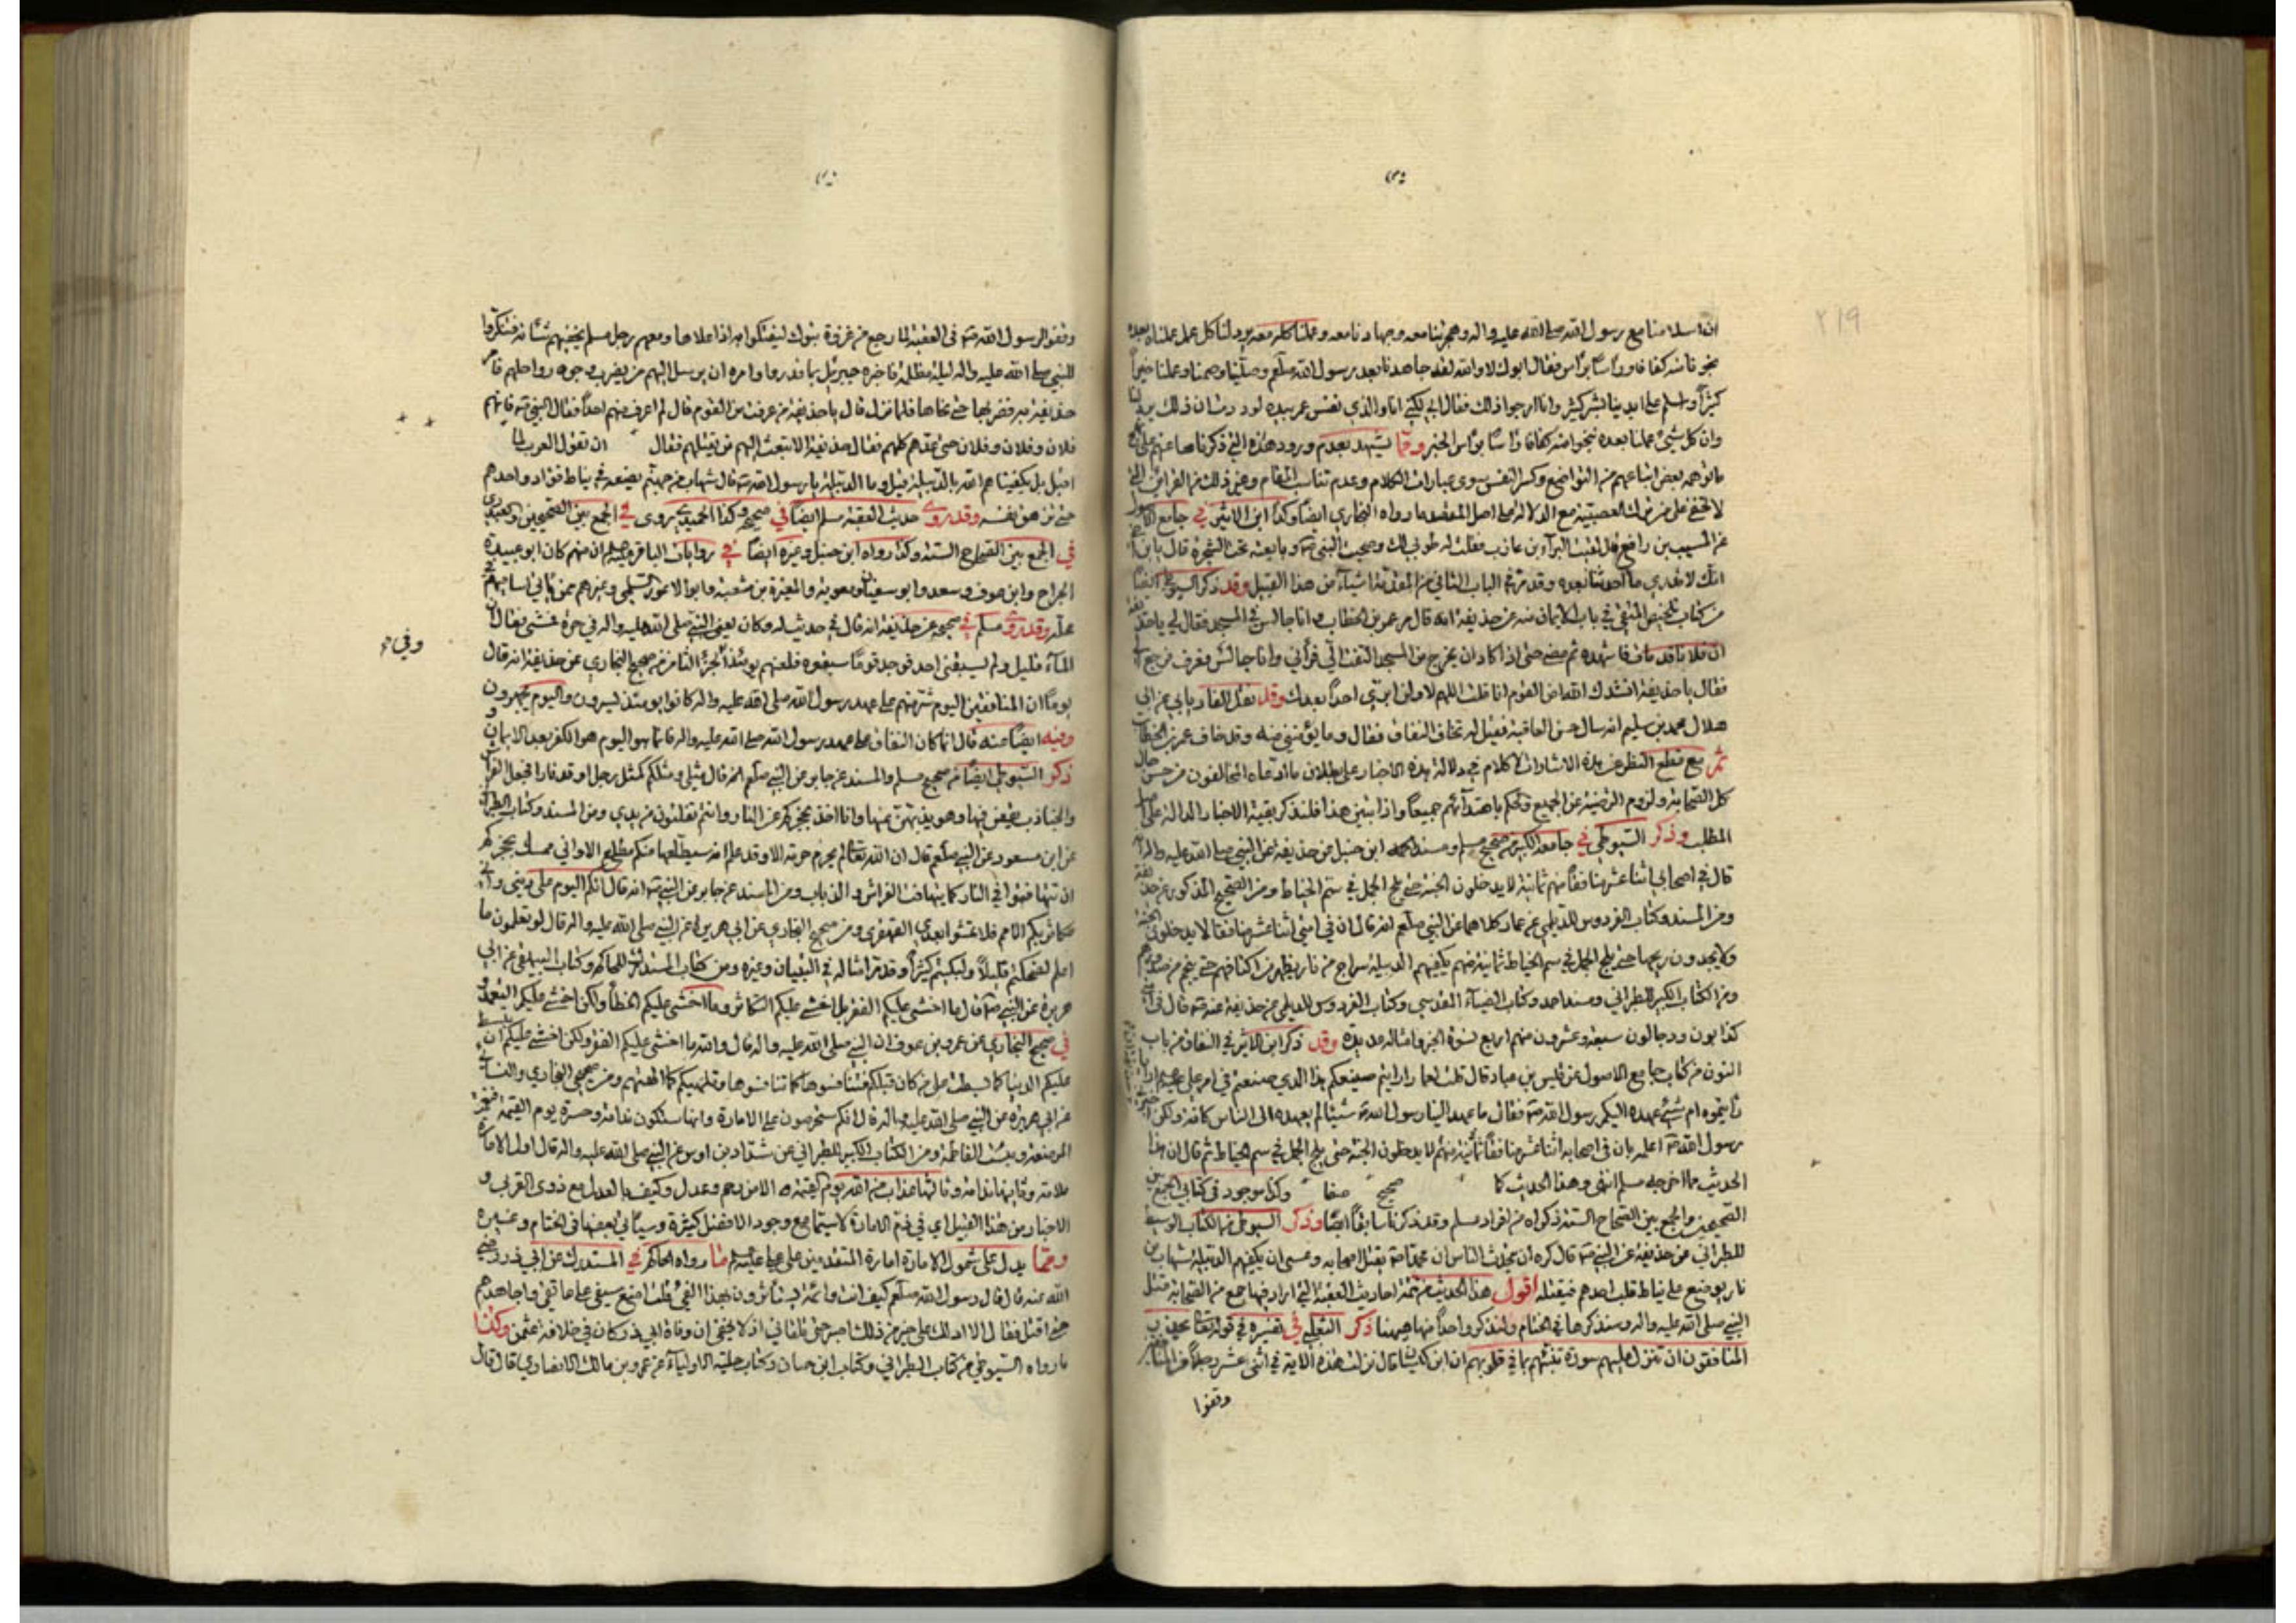 ان اسلامنا مع رسول الله صلى الله عليه واله وهجرتنا معه وجهادنا معه وعملنا كله معه برد لنا كل عمل عملناه بعده
نجونا منه كفافا وراسا براس فقال ابوك لا والله لقد جاهدنا بعد رسول الله صلعم وصلينا وصمنا وعملنا خيرا
كثيرا واسلم على ايدينا بشر كثير وانا ارجوا ذلك فقال ابي لكني انا والذي نفس عمر بيده لوددت ان ذلك برد لنا
وان كل شيء عملنا بعده نجونا منه كفافا راسا براس الخبر ومما يشهد بعدم ورود هذه التي ذكرناها عنهم على
ما توهمه بعض اتباعهم من التواضع وكسر النفس سوى عبارات الكلام وعدم تناسب المقام وغير ذلك من القرائن التي
لا تخفى على من ترك العصبية مع الدلالة على اصل المقصد ما رواه البخاري ايضا وكذا ابن الاثير في جامع الاصول
عن المسيب بن رافع قال لقيت البرآء بن عازب فقلت له طوبى لك وصحبت النبي ص وبايعته تحت الشجرة قال يا ابن اخي
انك لا تدري ما احدثنا بعده وقد مر في الباب الثاني من المقدمة اشياء من هذا القبيل وقد ذكر السيوطي ايضا
من كتاب تلخيص المتفق في باب الايمان منه عن حذيفة انه قال مر عمر بن الخطاب وانا جالس في المسجد فقال لي يا حذيفة
ان فلانا قد مات فاشهده ثم مضى حتى اذا كاد ان يخرج من المسجد التفت الي فرآني وانا جالس فعرف فرجع الي
فقال يا حذيفة انشدك الله امن القوم انا قلت اللهم لا ولن ابرئ احدا بعدك وقد نقل الفاريابي عن ابي
هلال محمد بن سليم انه سال حسن العاقبة فقيل له تخاف النفاق فقال وما يؤمنني منه وقد خاف عمر بن الخطاب
ثم مع قطع النظر عن هذه الاشارات لا كلام في دلالة هذه الاخبار على بطلان ما ادعاه المخالفون من حسن حال
كل الصحابة ولزوم الترضية عن الجميع والحكم باهتدائهم جميعا واذا تبين هذا فلنذكر بقية الاخبار الدالة على
المطلب وذكر السيوطي في جامعه الكبير من صحيح مسلم ومسند احمد ابن حنبل عن حذيفة عن النبي صلى الله عليه واله
قال في اصحابي اثنا عشر منافقا منهم ثمانية لا يدخلون الجنة حتى يلج الجمل في سم الخياط ومن الصحيح المذكور عن حذيفة
ومن المسند وكتاب الفردوس للديلمي عن عمار كلاهما عن النبي صلعم انه قال ان في امتي اثنا عشر منافقا لا يدخلون الجنة
ولا يجدون ريحها حتى يلج الجمل في سم الخياط ثمانية منهم يكفيهم الدبيلة سراج من نار يظهر من اكتافهم حتى ينجم من صدورهم
ومن الكتاب الكبير للطبراني ومسند احمد وكتاب الضياء المقدسي وكتاب الفردوس للديلمي عن حذيفة عنه ص قال في امتي
كذابون ودجالون سبعة وعشرون منهم اربع نسوة الخبر وامثاله عديدة وقد ذكر ابن الاثير في النفاق من باب
النون من كتاب جامع الاصول عن قيس بن عباد قال قلت لعمار ارايتم صنيعكم هذا الذي صنعتم في امر علي
رايتموه ام شيء عهده اليكم رسول الله ص فقال ما عهد الينا رسول الله ص شيئا لم يعهده الى الناس كافة ولكن
رسول الله ص اعلمه بان في اصحابه اثنا عشر منافقا ثمانية منهم لا يدخلون الجنة حتى يلج الجمل في سم الخياط ثم قال ان هذا
الحديث مما اخرجه مسلم انتهى وهذا الحديث كما صحيح وكذا موجود في كتابي الجمع بين
الصحيحين والجمع بين الصحاح الستة ذكراه من افراد مسلم وقد ذكرنا سابقا ايضا وذكر السيوطي من الكتاب الوسيط
للطبراني عن حذيفة عن النبي ص قال كره ان يحدث الناس ان محمدا ص يقتل اصحابه وعسى ان يكفيهم الدبيلة شهاب من
نار يوضع على نياط قلب احدهم فيقتله اقول هذا الحديث من تتمة احاديث العقبة التي اراد فيها جمع من الصحابة قتل
النبي صلى الله عليه واله وسنذكرها في الختام ولنذكر واحدا منها ههنا ذكر الثعلبي في تفسيره في قوله تعالى يحذر
المنافقون ان تنزل عليهم سورة تنبئهم بما في قلوبهم ان ابن كيسان قال نزلت هذه الاية في اثنى عشر رجلا من المنافقين
وقفوا
وقفوا لرسول الله ص في العقبة لما رجع من غزوة تبوك ليفتكوا به اذا علاها ومعهم رجل مسلم يخفيهم شانه فتنكروا
للنبي صلى الله عليه واله ليلة مظلمة فاخبره جبرئيل بما قدروا وامره ان يرسل اليهم من يضرب وجوه رواحلهم فامر
حذيفة فضربها حتى نحاها فلما نزل قال يا حذيفة من عرفت من القوم قال لم اعرف منهم احدا فقال النبي ص فانهم
فلان وفلان وفلان حتى عدهم كلهم فقال حذيفة الا تبعث اليهم من يقتلهم فقال ان تقول العرب لما
اقبل بل يكفيناهم الله بالدبيلة قيل وما الدبيلة يا رسول الله ص قال شهاب من جهنم يضعه على نياط فؤاد واحدهم
حتى تزهق نفسه وقد روى حديث العقبة مسلم ايضا في صحيحه وكذا الحميدي روى في الجمع بين الصحيحين والعبدري
في الجمع بين الصحاح الستة وكذا رواه ابن حنبل وغيره ايضا في روايات الباقر عليه السلم ان منهم كان ابو عبيدة
الجراح وابن عوف وسعد وابو سفيان ومعوية والمغيرة بن شعبة وابو الاعور السلمي وغيرهم ممن ياتي اساميهم في
محله وقد روى مسلم في صحيحه عن حذيفة انه قال في حديث له وكان يعني النبي صلى الله عليه واله في حرة فمشى فقال ان
المآء قليل ولم يسبقني احد فوجد قوما سبقوه فلعنهم يومئذ الجزء الثامن من صحيح البخاري عن حذيفة انه قال
وفي
يوما ان المنافقين اليوم شر منهم على عهد رسول الله صلى الله عليه واله كانوا يومئذ يسرون واليوم يجهرون
وفيه ايضا عنه قال انما كان النفاق على عهد رسول الله صلى الله عليه واله فاما هو اليوم هو الكفر بعد الايمان و
ذكر السيوطي ايضا من صحيح مسلم والمسند عن جابر عن النبي صلعم انه قال مثلي ومثلكم كمثل رجل اوقد نارا فجعل الفراش
والجنادب يقعن فيها وهو يذبهن عنها وانا اخذ بحجزكم عن النار وانتم تفلتون من يدي ومن المسند وكتاب الطبراني
عن ابن مسعود عن النبي صلعم قال ان الله تعالى لم يحرم حرمة الا وقد علم انه سيطلعها منكم مطلع الا واني ممسك بحجزكم
ان تتهافتوا في النار كما يتهافت الفراش والذباب ومن المسند عن جابر عن النبي ص انه قال انكم اليوم على دين واني
مكاثر بكم الامم فلا تمشوا بعدي القهقرى ومن صحيح البخاري عن ابي هريرة عن النبي صلى الله عليه واله قال لو تعلمون ما
اعلم لضحكتم قليلا ولبكيتم كثيرا وقد مر امثاله في التبيان وغيره ومن كتاب المستدرك للحاكم وكتاب البيهقي عن ابي
هريرة عن النبي ص قال ما اخشى عليكم الفقر بل اخشى عليكم التكاثر وما اخشى عليكم الخطأ ولكن اخشى عليكم التعمد و
في صحيح البخاري عن عمرو بن عوف ان النبي صلى الله عليه واله قال والله ما اخشى عليكم الفقر ولكن اخشى عليكم ان تبسط
عليكم الدنيا كما بسطت على من كان قبلكم فتنافسوها كما تنافسوها وتلهيكم كما الهتهم ومن صحيحي البخاري والنسائي
عن ابي هريرة عن النبي صلى الله عليه واله قال انكم ستحرصون على الامارة وانها ستكون ندامة وحسرة يوم القيمة فنعم
المرضعة وبئست الفاطمة ومن الكتاب الكبير للطبراني عن شداد بن اوس عن النبي صلى الله عليه واله قال اول الامارة
ملامة وثانيها ندامة وثالثها عذاب من الله يوم القيمة الا من رحم وعدل وكيف بالعدل مع ذوى القربى و
الاخبار من هذا القبيل اي في ذم الامارة لا سيما مع وجود الافضل كثيرة وسيأتي بعضها في الختام وغيره
ومما يدل على شمول الامارة امارة المتقدمين على علي عليه السلم ما رواه الحاكم في المستدرك عن ابي ذر رضي
الله عنه قال قال رسول الله صلعم كيف انت وائمة يستأثرون بهذا الفيء قلت اضع سيفي على عاتقي واجاهدهم
حتى اقتل فقال الا ادلك على خير من ذلك اصبر حتى تلقاني اذ لا يخفى ان وفاة ابي ذر كان في خلافة عثمن وكذا
ما رواه السيوطي من كتاب الطبراني وكتاب ابن حبان وكتاب حلية الاولياء عن عمرو بن مالك الانصاري قال قال